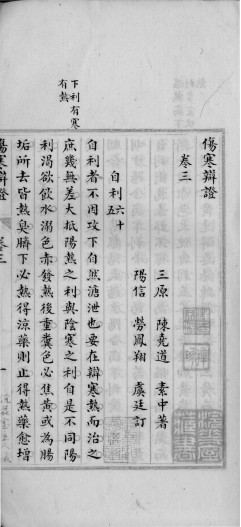 傷寒辯證
卷三
三原 陳堯道 素中著
陽信 勞鳳翔 虞廷訂
自利六十五
自利者不因攻下自然溏泄也要在辯寒熱而治之
庶幾無差大抵陽熱之利與陰寒之利自是不同陽
利渴欲飲水溺色赤發熱後重糞色必焦黃或為腸
垢所去皆熱臭臍下必熱得涼藥則止得熱藥愈增
下利有寒有熱
傷寒辯證
卷三
一